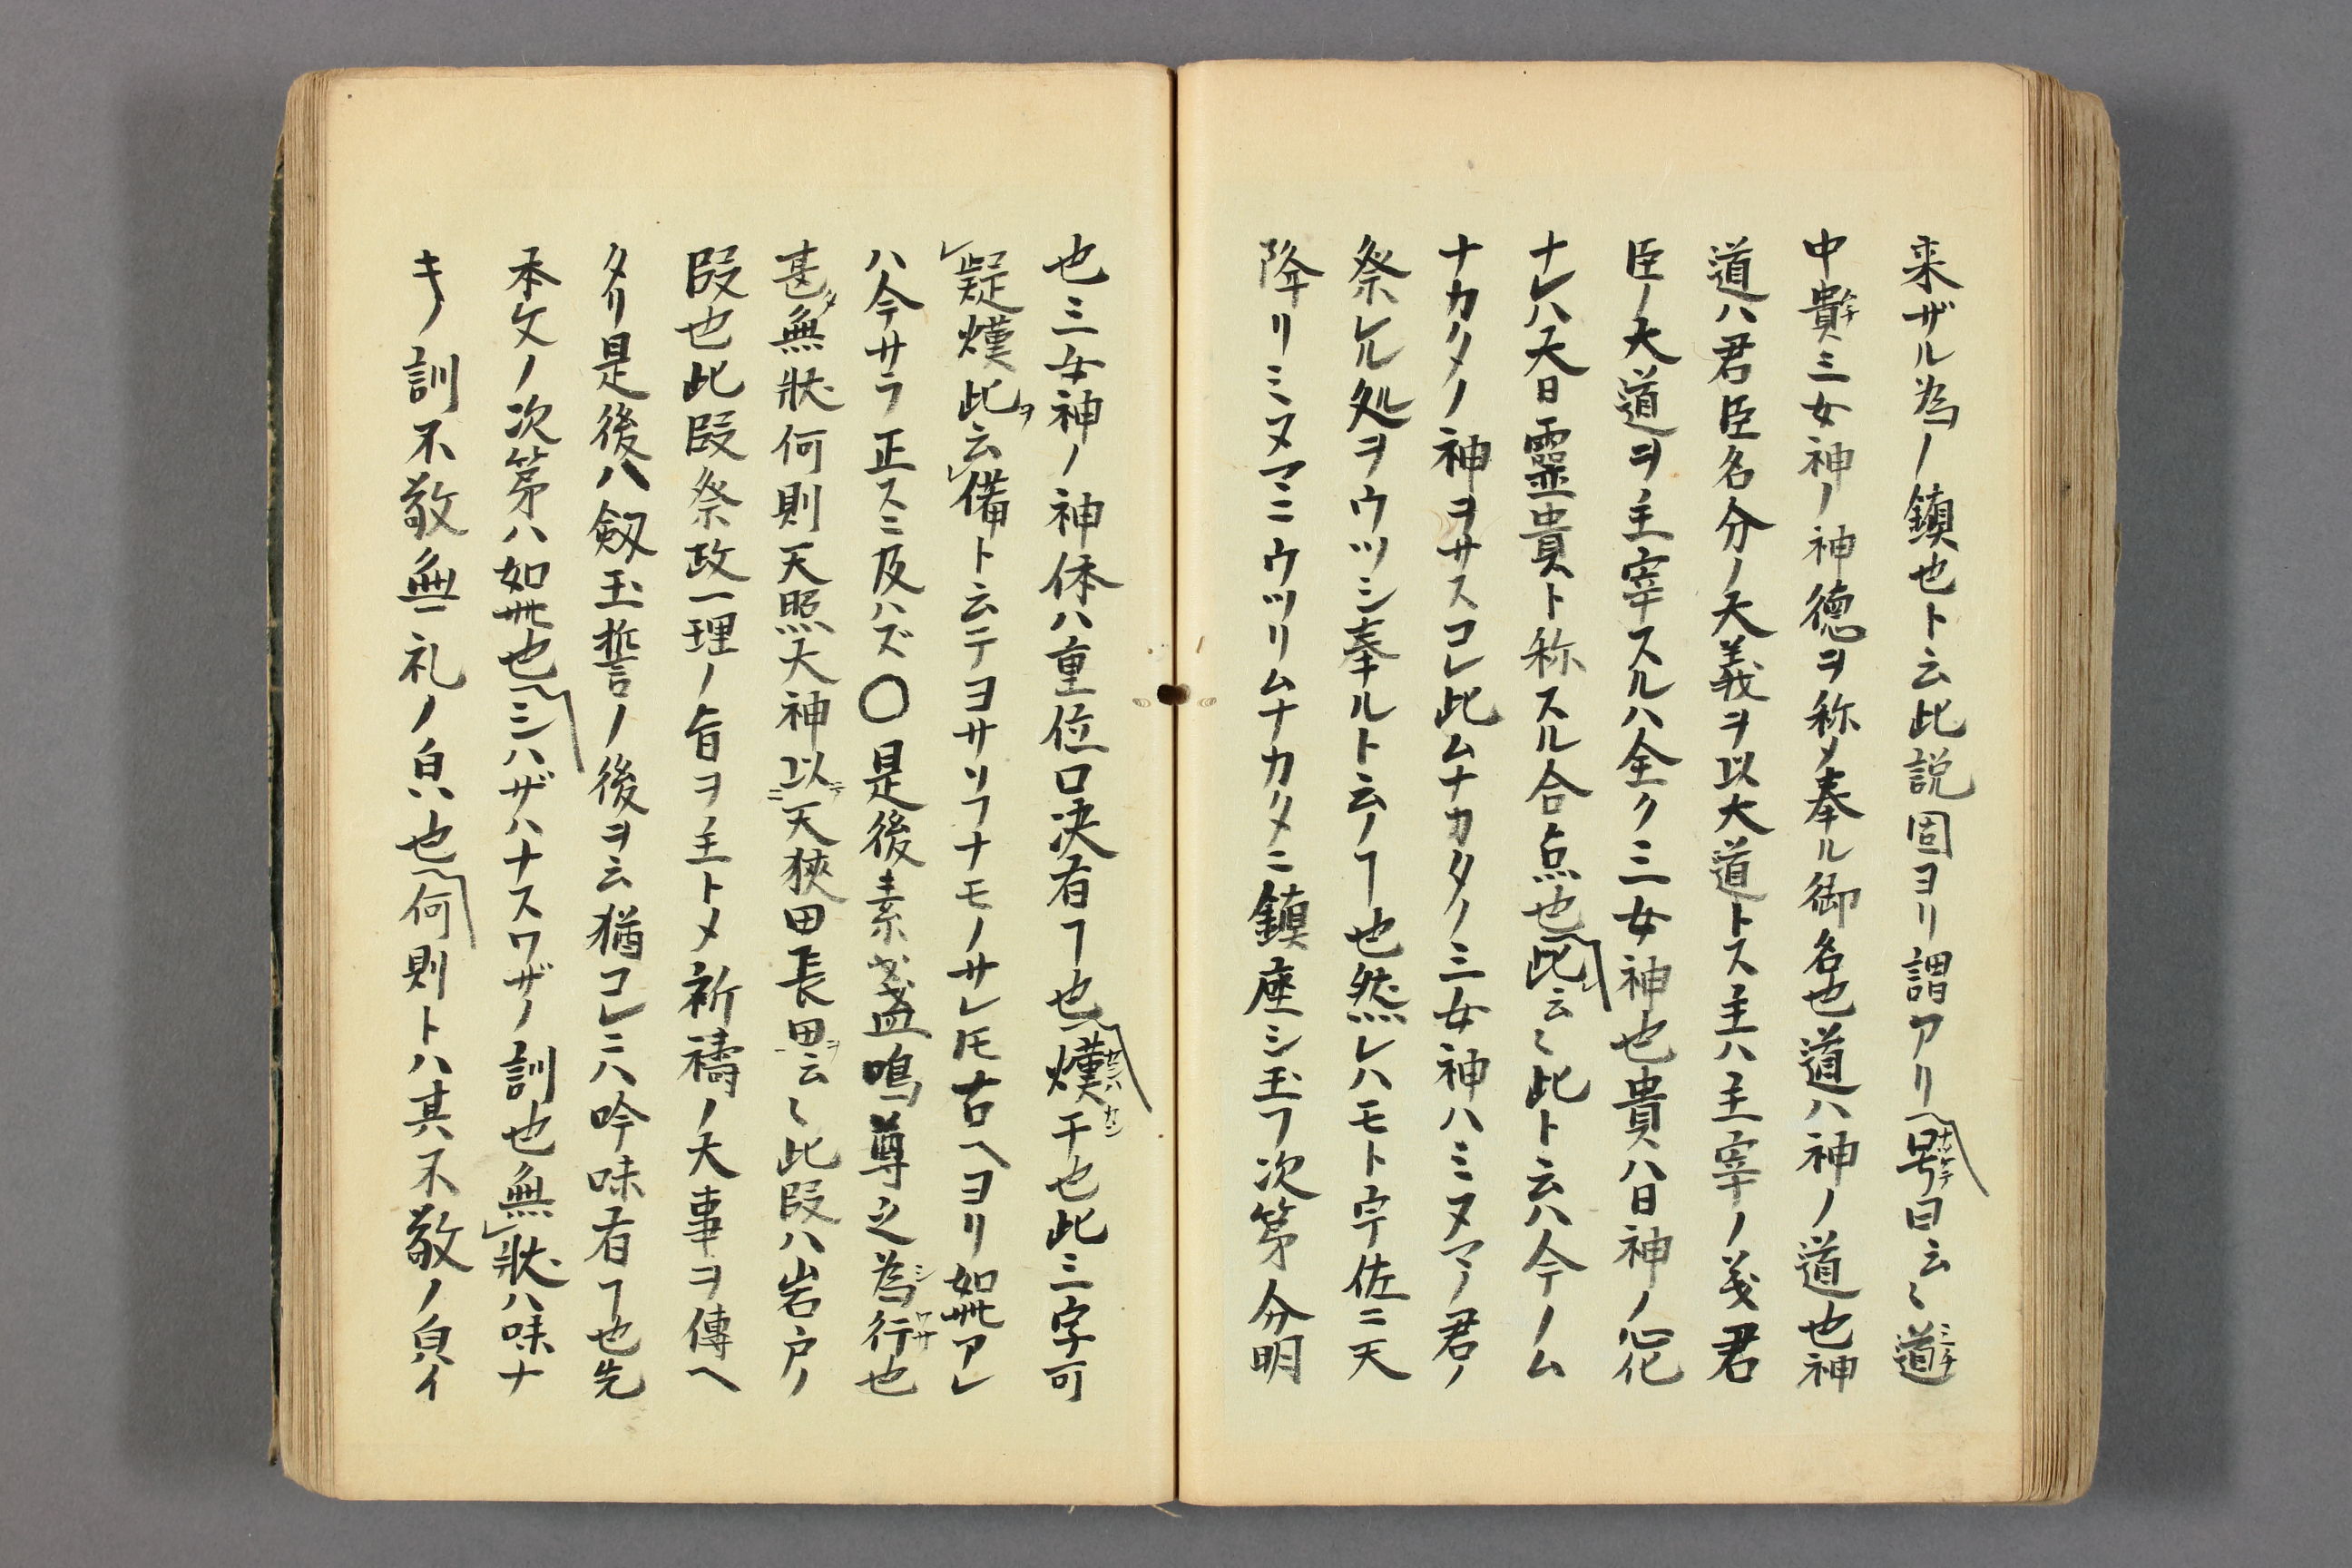 来ザル為ノ鎮也ト云此説固ヨリ謂アリ号ナツケテ曰云〻道ミチ
中貴ムチ三女神ノ神徳ヲ称メ奉ル御名也道ハ神ノ道也神
道ハ君臣名分ノ大義ヲ以大道トス主ハ主宰ノ義君
臣ノ大道ヲ主宰スルハ全ク三女神也貴ハ日神ノ心化
ナレハ大日孁貴ト称スル合点也此云〻此ト云ハ今ノム
ナカタノ神ヲサスコレ此ムナカタノ三女神ハミヌマノ君ノ
祭レル処ヲウツシ奉ルト云ノヿ也然レハモト宇佐ニ天
降リミヌマニウツリムナカタニ鎮座シ玉フ次第分明
也三女神ノ神体ハ重位口决有ヿ也熯干也此三字可
疑熯此ヲ云備ト云テヨサソフナモノサレ𪜈古ヘヨリ如此アレ
ハ今サラ正スニ及ハズ〇是後素戔盞鳴尊之為シ行ワサ也
甚タ無狀何則天照大神以天狹田長田ヲ云〻此段ハ岩戸ノ
段也此段祭政一理ノ旨ヲ主トメ祈禱ノ大事ヲ傳ヘ
タリ是後ハ剱玉誓ノ後ヲ云猶コレニハ吟味有ヿ也先
本文ノ次第ハ如此也シハザハナスワザノ訓也無狀ハ味ナ
キノ訓不敬無礼ノ㒵也何則トハ其不敬ノ㒵イ